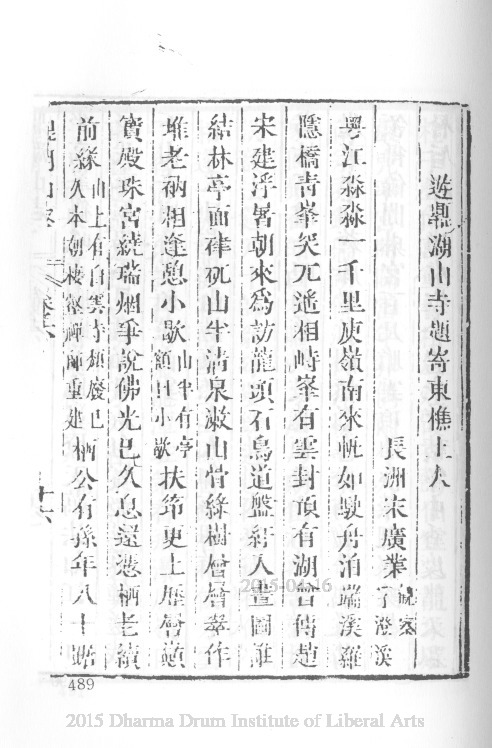 遊鼎湖山寺題寄東樵上人
長洲宋廣業 澄溪
粵江淼淼一千里庾嶺南來帆如駛舟泊端溪羅
隱橋青峯突兀遙相峙峯有雲封頂有湖曾傳趙
宋建浮屠朝來爲訪龍頭石鳥道盤紆入畫圖誰
結林亭面碑矹山半清泉漱山骨綠樹層層翠作
堆老衲相逢憩小歇山半有亭額曰小歇扶筇更上歷曾巔
寶殿珠宮繞瑞烟爭說佛光已久息還慿栖老續
前緣山上有白雲寺頹廢已久本朝棲壑禪師重建栖公有孫年八十
卷六
十六
489
2015-04-16
2015 Dharma Drum Institute of Liberal Arts